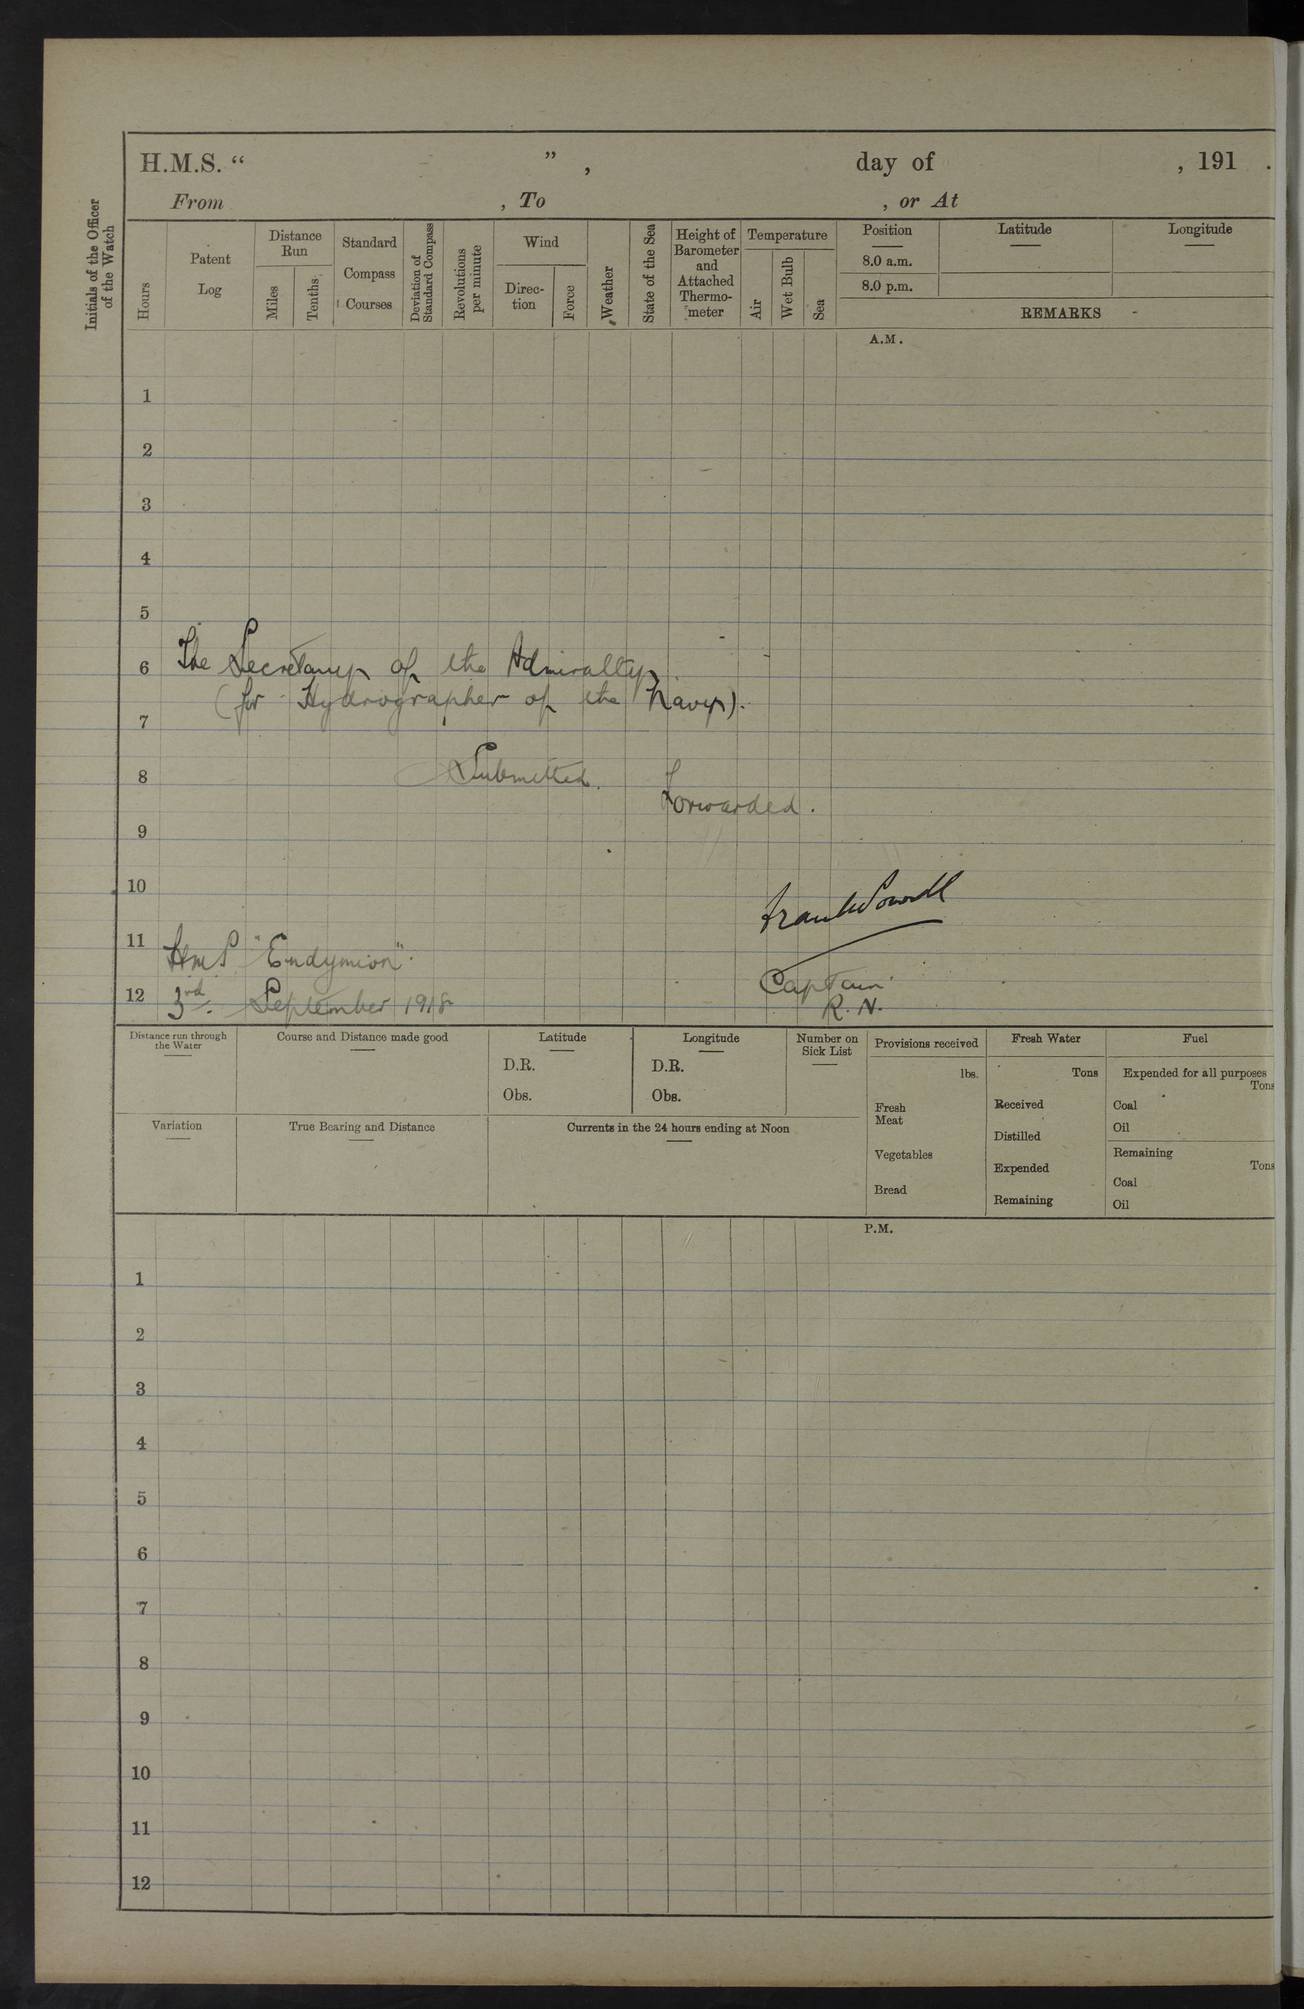 H.M.S. “ ” , day of , 191 .
From , To , or At
Initials of the Officer
of the Watch
Hours
Patent
Log
Distance
Run
Miles
Tenths
Standard
Compass
Courses
Deviation of
Standard Compass
Revolutions
per minute
Wind
Direc-
tion
Force
Weather
State of the Sea
Height of
Barometer
and
Attached
Thermo-
meter
Temperature
Air
Wet Bulb
Sea
Position
8.0 a.m.
8.0 p.m.
Latitude
Longitude
REMARKS
A.M.
1
2
3
4
5
6 The Secretary of the Admiralty
(for Hydrographer of the Navy).
7
8 Submitted.
Forwarded.
9
10
11 HMS "Endymion".
Captain
12 3rd. September 1918
R.N.
Distance run through
the Water
Course and Distance made good
Latitude
D.R.
Obs.
Longitude
D.R.
Obs.
Number on
Sick List
Provisions received
lbs.
Fresh
Meat
Vegetables
Bread
Fresh Water
Tons
Received
Distilled
Expended
Remaining
Fuel
Expended for all purposes
Tons
Coal
Oil
Remaining
Tons
Coal
Oil
Variation
True Bearing and Distance
Currents in the 24 hours ending at Noon
P.M.
1
2
3
4
5
6
7
8
9
10
11
12